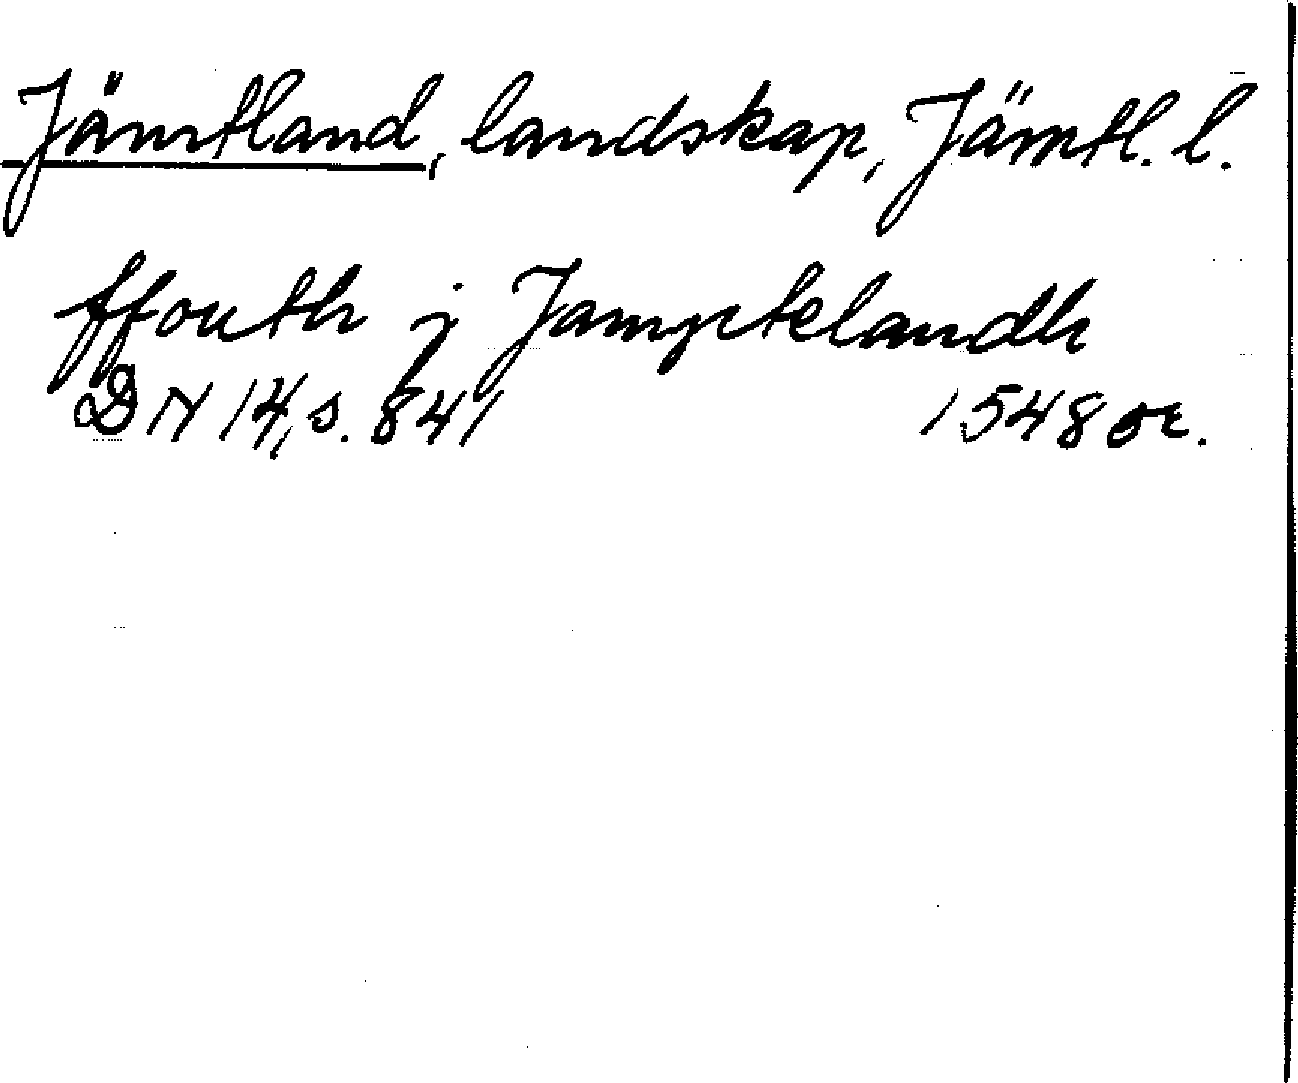 Jämtland, landskap, Jämtl. l.
ffouth j Jamptelandh
DN 14, s. 841 1548 or.